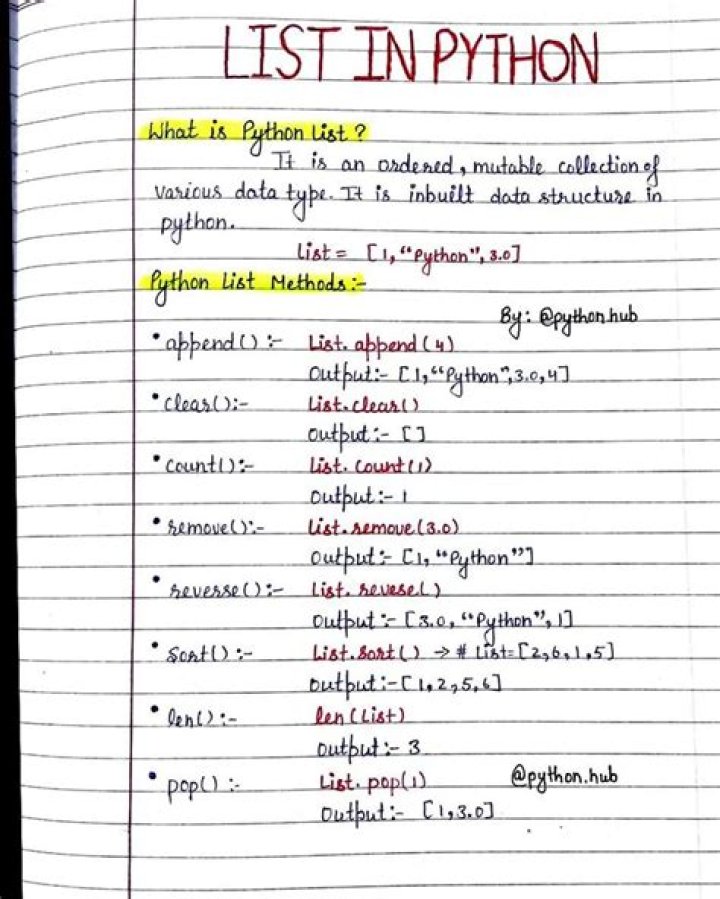 LIST IN PYTHON
What is Python List?
It is an ordered, mutable collection of
various data type. It is inbuilt data structure in
python.
List = [1, "Python", 3.0]
Python List Methods:-
By: @python.hub
• append() :- List.append(4)
Output:- [1, "Python", 3.0, 4]
• Clear():- List.clear()
Output:- []
• Count():- List.count(1)
Output:- 1
• remove():- List.remove(3.0)
Output:- [1, "Python"]
• reverse():- List.revese()
Output:- [3.0, "Python", 1]
• Sort():- List.Sort() → # List=[2,6,1,5]
Output:-[1,2,5,6]
• len():- len(List)
Output:- 3
• pop():- List.pop(1) @python.hub
Output:- [1,3.0]